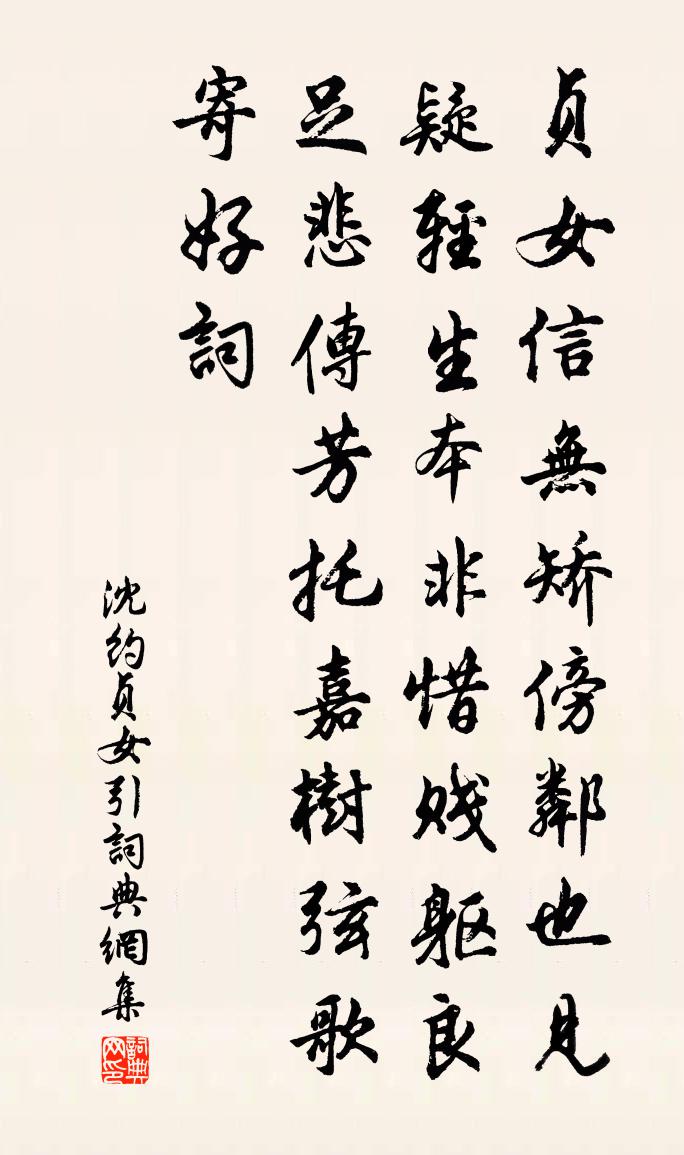 貞女信無矯傍鄰也見
疑輕生本非惜賤軀良
足悲傳芳托嘉樹弦歌
寄好詞
沈約貞女引詞典網集
詞典网印